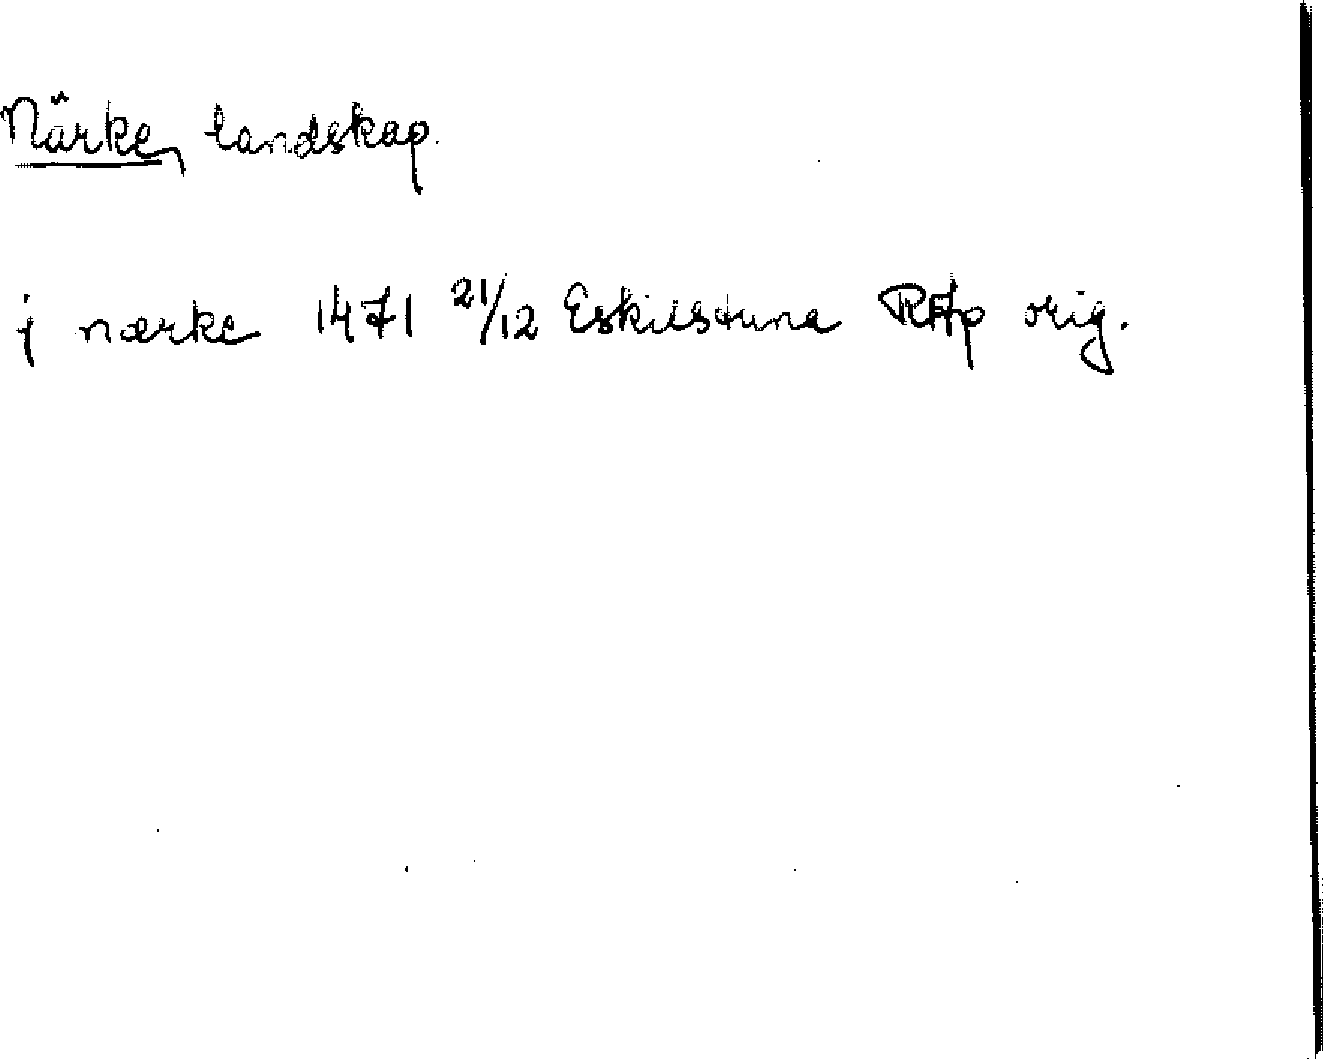 Närke, landskap.
j nærke 1471 21/12 Eskilstuna RAp orig.